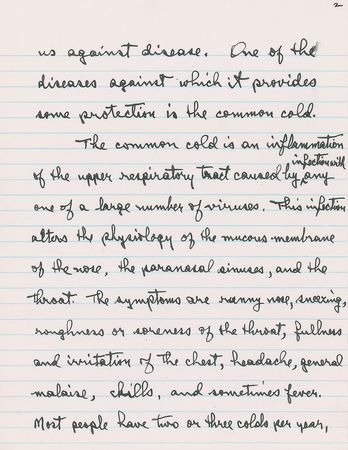 2
us against disease. One of the
diseases against which it provides
some protection is the common cold.
The common cold is an inflammation
infection with
of the upper respiratory tract caused by any
one of a large number of viruses. This infection
alters the physiology of the mucous membrane
of the nose, the paranasal sinuses, and the
throat. The symptoms are runny nose, sneezing,
roughness or soreness of the throat, fullness
and irritation of the chest, headache, general
malaise, chills, and sometimes fever.
Most people have two or three colds per year,